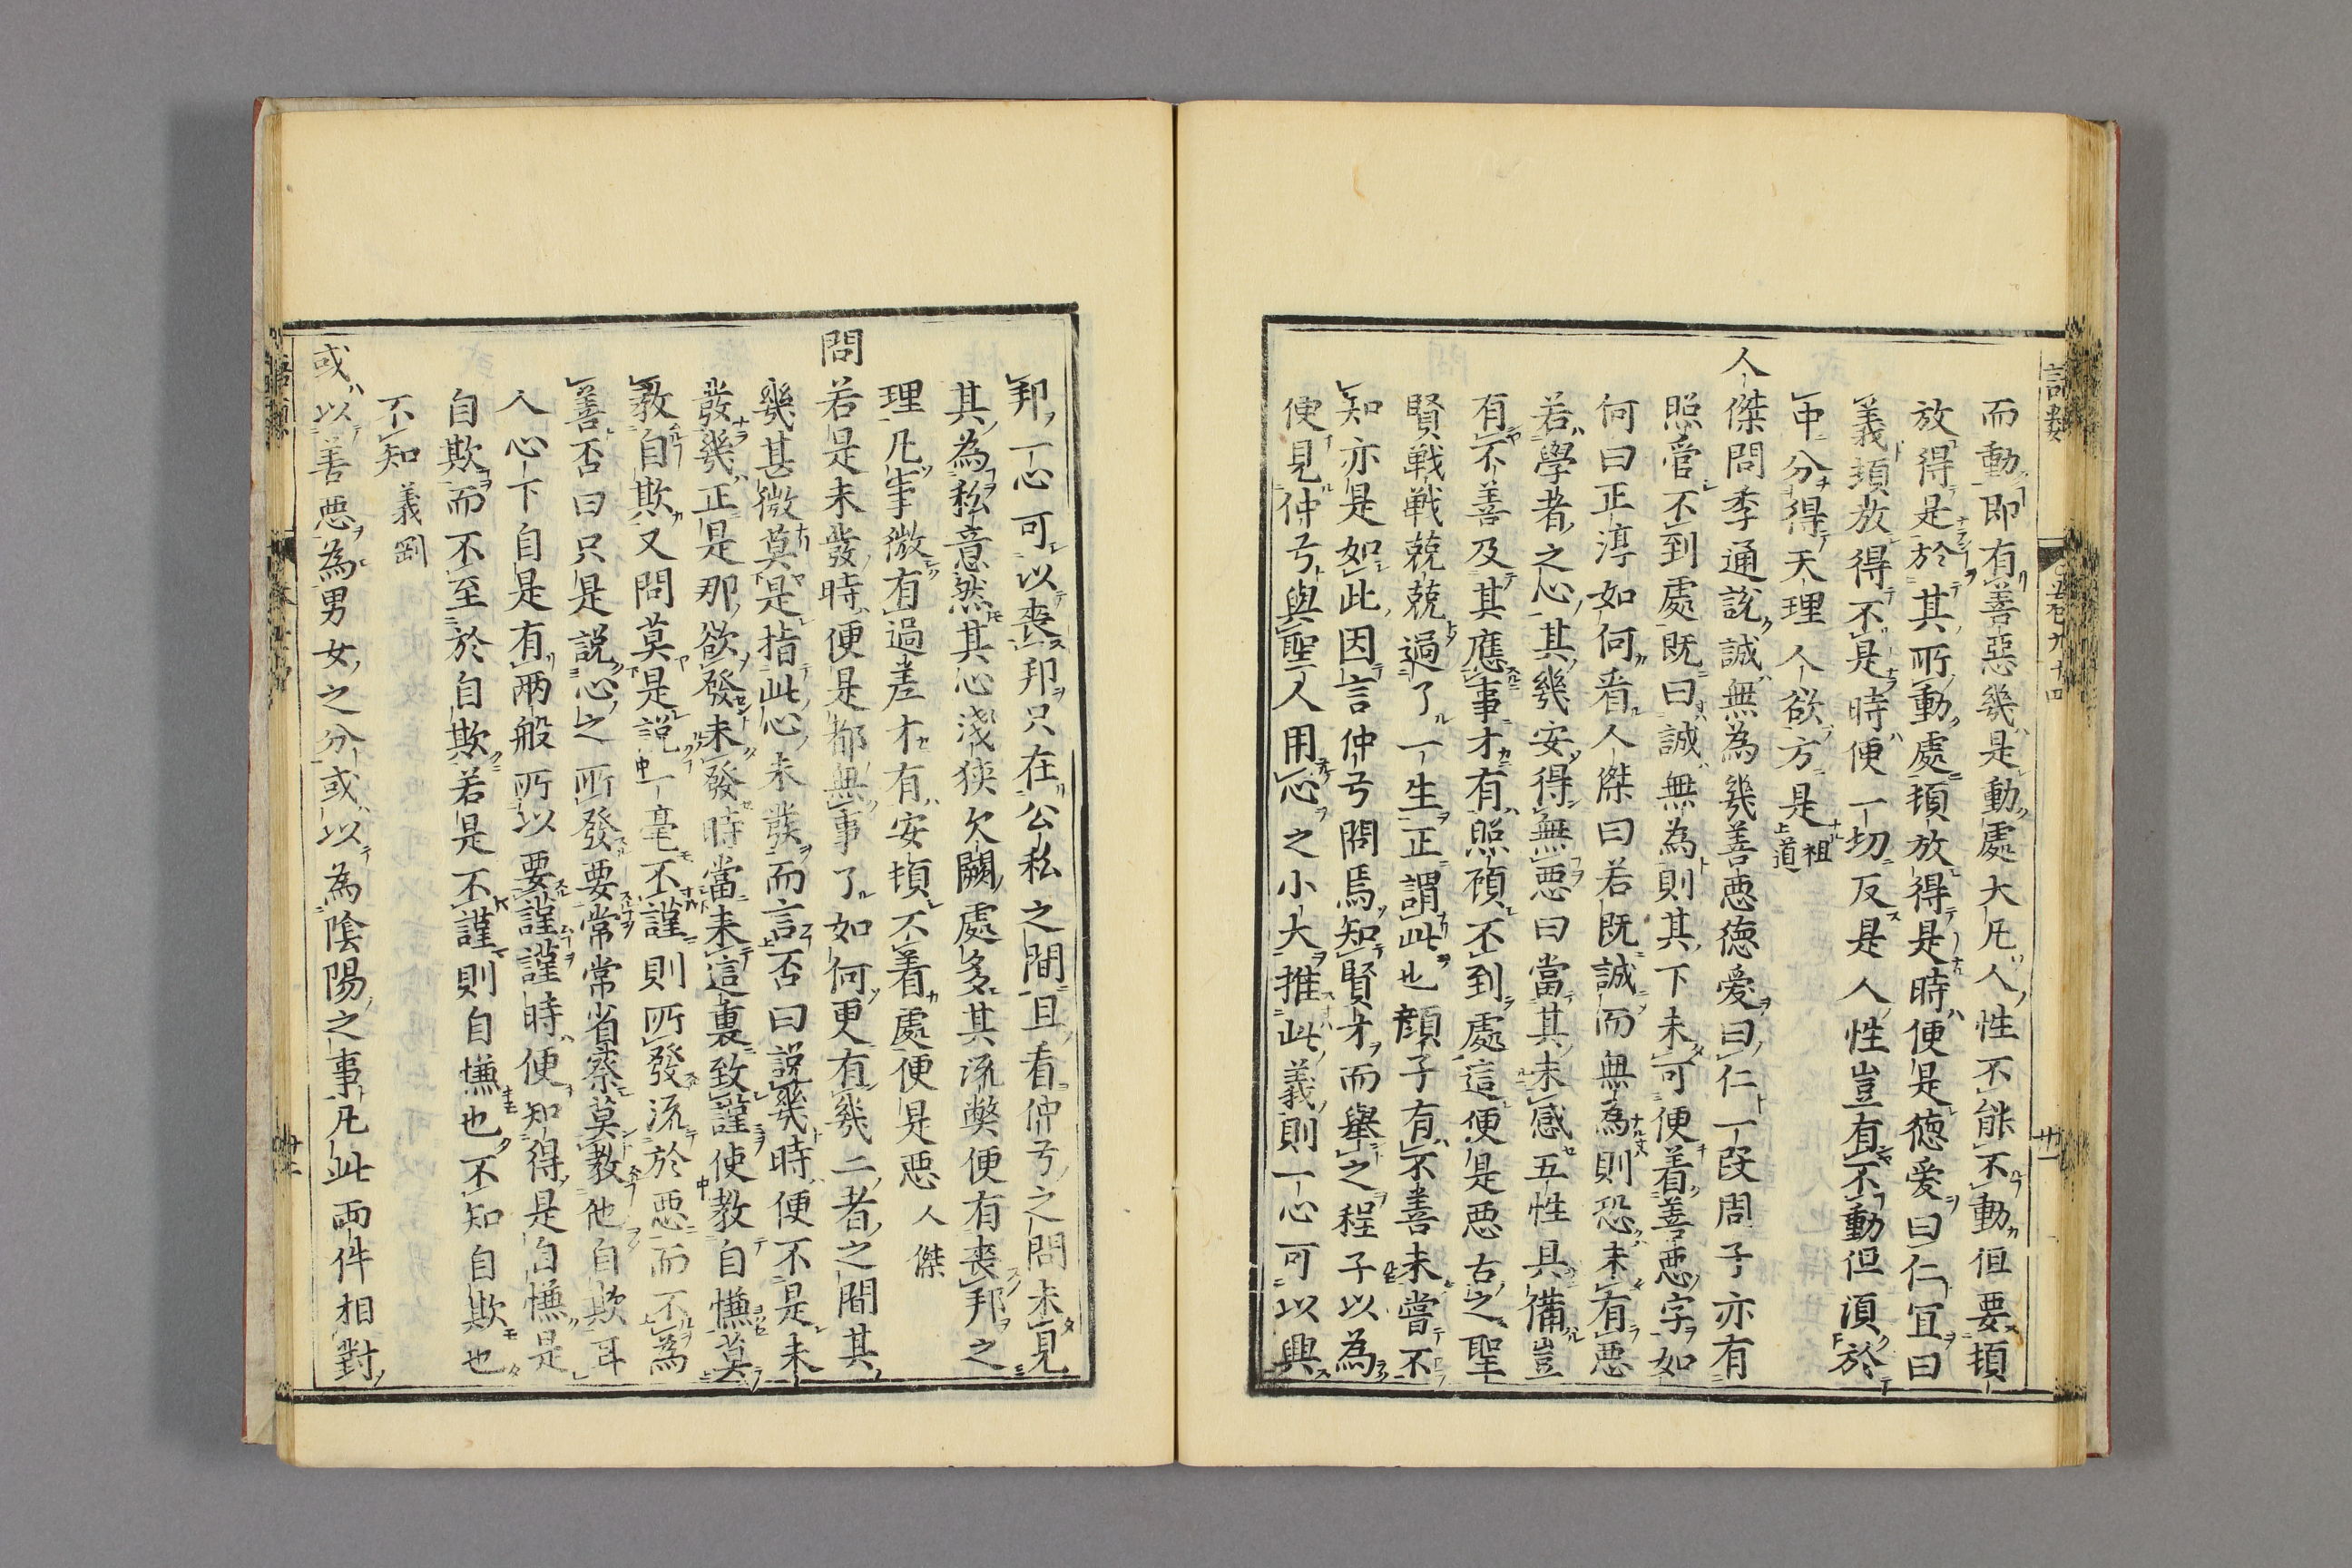 而動即有善惡幾是動處大凡人性不能不動但要頓
放得是於其所動處頓放得是時便是德愛曰仁宜曰
義頓放得不是時便一切反是人性豈有不動但須於
中分得天理人欲方是 祖道
人傑問季通說誠無為幾善惡德愛曰仁一段周子亦有
照管不到處既曰誠無為則其下未可便着善惡字如
何曰正淳如何看人傑曰若既誠而無為則恐未有惡
若學者之心其幾安得無惡曰當其未感五性具備豈
有不善及其應事才有照顧不到處這便是惡古之聖
賢戰戰兢兢過了一生正謂此也顏子有不善未嘗不
知亦是如此因言仲弓問焉知賢才而舉之程子以為
便見仲弓與聖人用心之小大推此義則一心可以興
邦一心可以喪邦只在公私之間且看仲弓之問未見
其為私意然其心淺狹欠闕處多其流弊便有喪邦之
理凡事微有過差才有安頓不着處便是惡 人傑
問若是未發時便是都無事了如何更有幾二者之間其
幾甚微莫是指此心未發而言否曰說幾時便不是未
發幾正是那欲發未發時當來這裏致謹使教自慊莫
教自欺又問莫是說一毫不謹則所發流於惡而不為
善否曰只是說心之所發要常常省察莫教他自欺耳
人心下自是有兩般所以要謹謹時便知得是自慊是
自欺而不至於自欺若是不謹則自慊也不知自欺也
不知 義剛
或以善惡為男女之分或以為陰陽之事凡此兩件相對